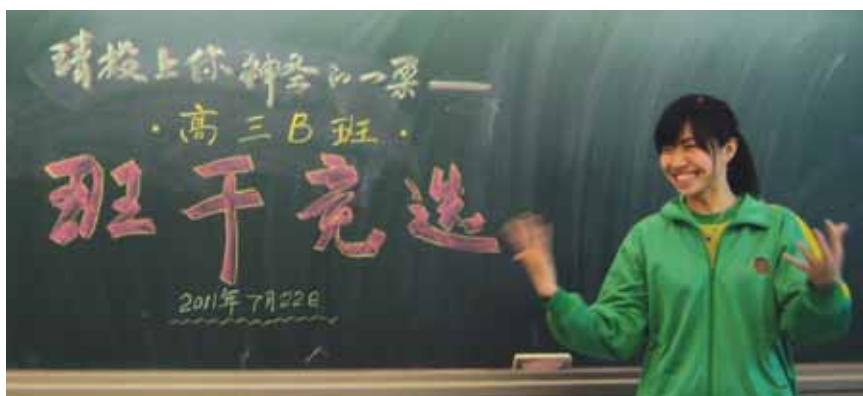 请投上你神圣的一票——
·高三B班·
班干竞选
2011年7月22日